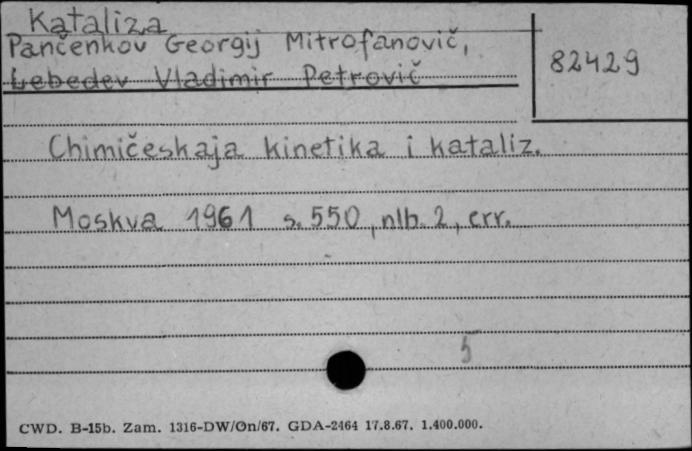 Kataliza
Pančenkov Georgij Mitrofanovič,
Lebedev Vladimir Petrovič
82429
Chimičeskaja kinetika i kataliz.
Moskva 1961 s. 550, nlb. 2, err.
5
CWD. B-15b. Zam. 1316-DW/On/67. GDA-2464 17.8.67. 1.400.000.